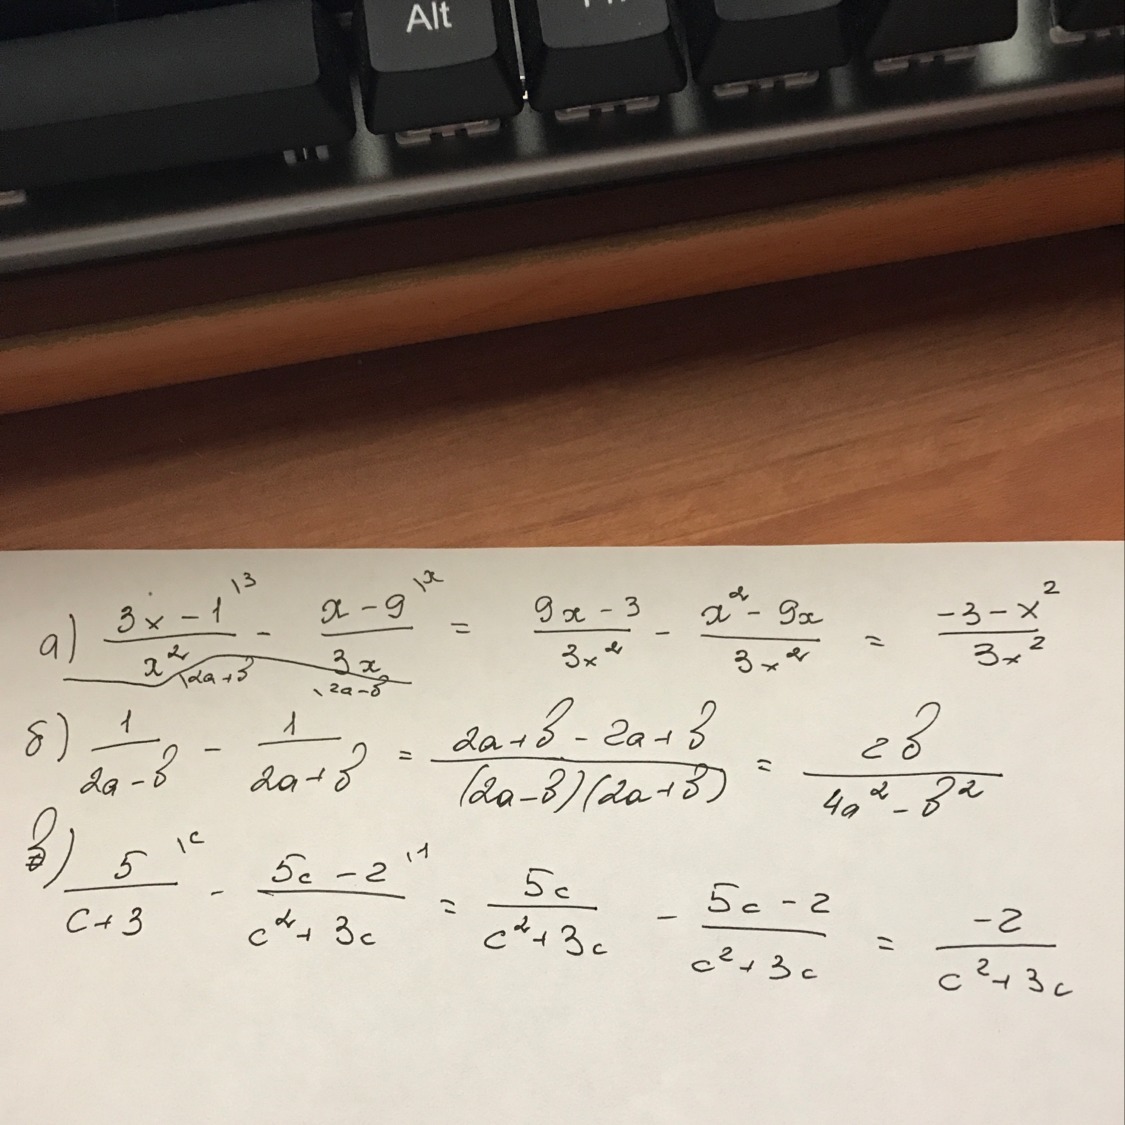 Alt
а) (3x - 1)/x² \3 - (x - 9)/3x \x = (9x - 3)/3x² - (x² - 9x)/3x² = (-3 - x²)/3x²
\2a+b \2a-b
б) 1/(2a - b) - 1/(2a + b) = (2a + b - 2a + b)/((2a - b)(2a + b)) = 2b/(4a² - b²)
в) 5/(c + 3) \c - (5c - 2)/(c² + 3c) \1 = 5c/(c² + 3c) - (5c - 2)/(c² + 3c) = -2/(c² + 3c)